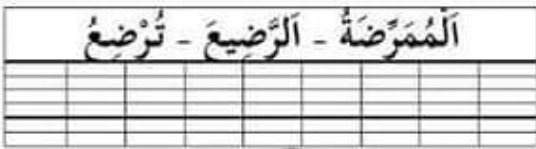 اَلْمُمَرِّضَةُ - اَلرَّضِيعَ - تُرْضِعُ